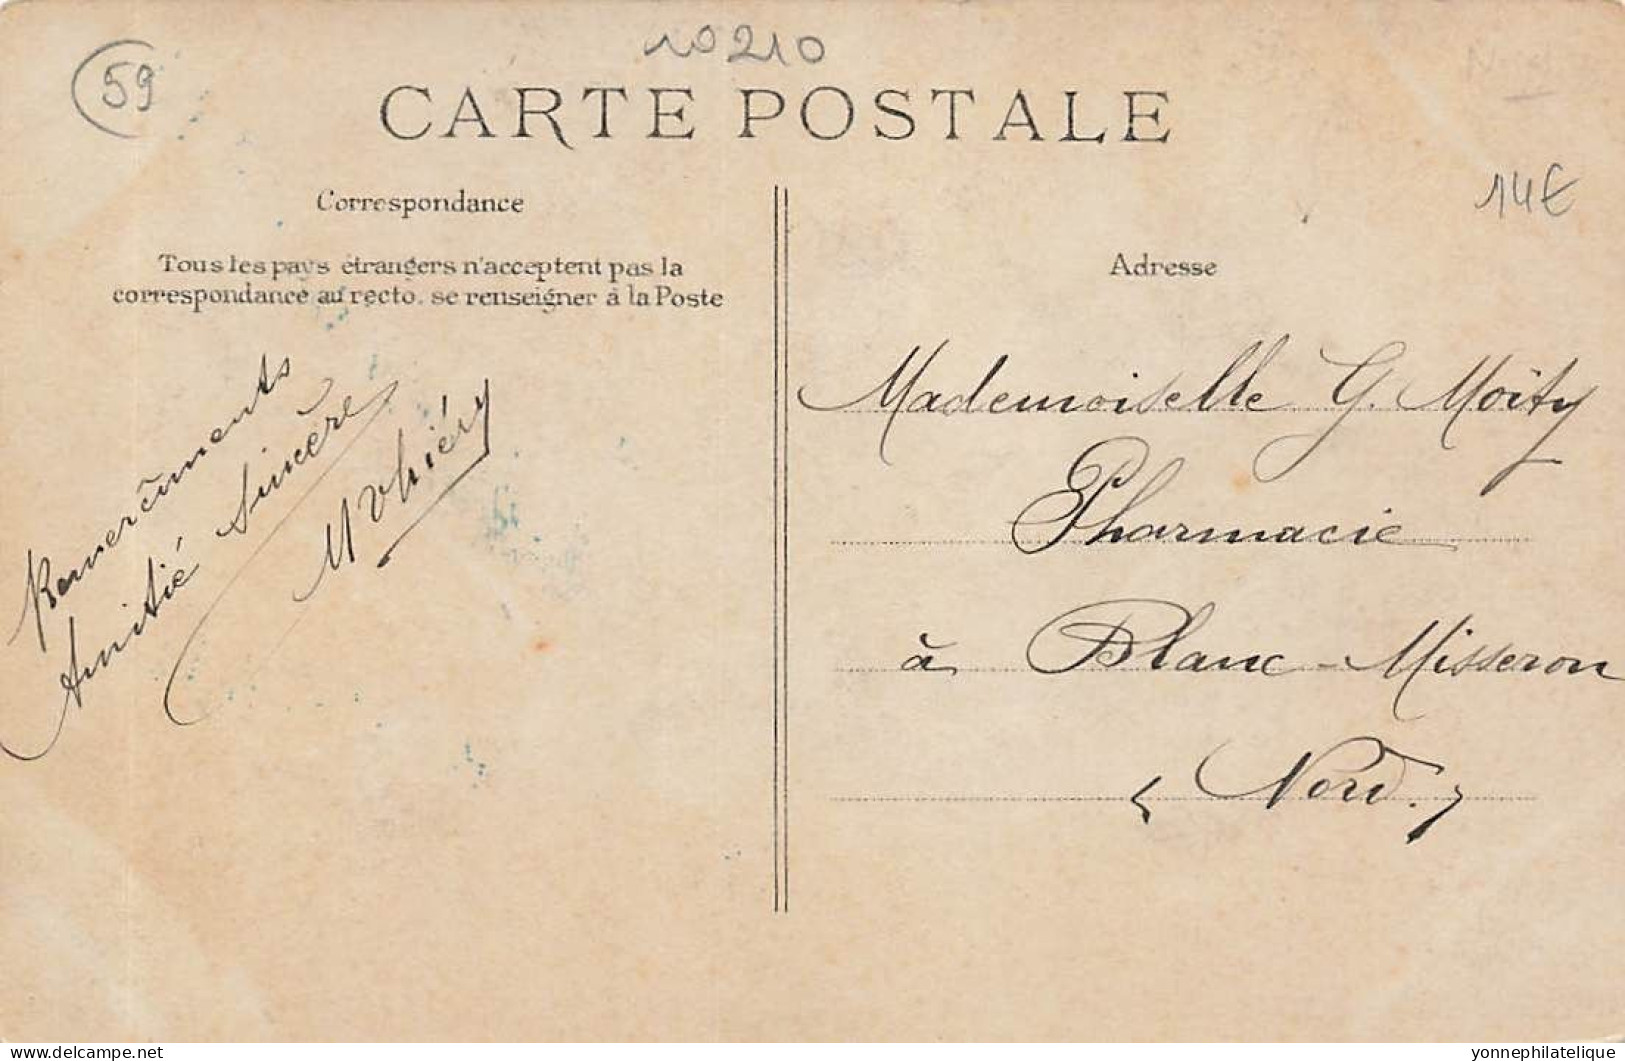 10210
59
CARTE POSTALE
14€
Correspondance
Tous les pays étrangers n'acceptent pas la
correspondance au recto. se renseigner à la Poste
Remerciments
Amitié Sincère
Adresse
Mademoiselle G. Moity
Pharmacie
à Blanc-Misseron
(Nord.)
delcampe.net
yonnephilatelique